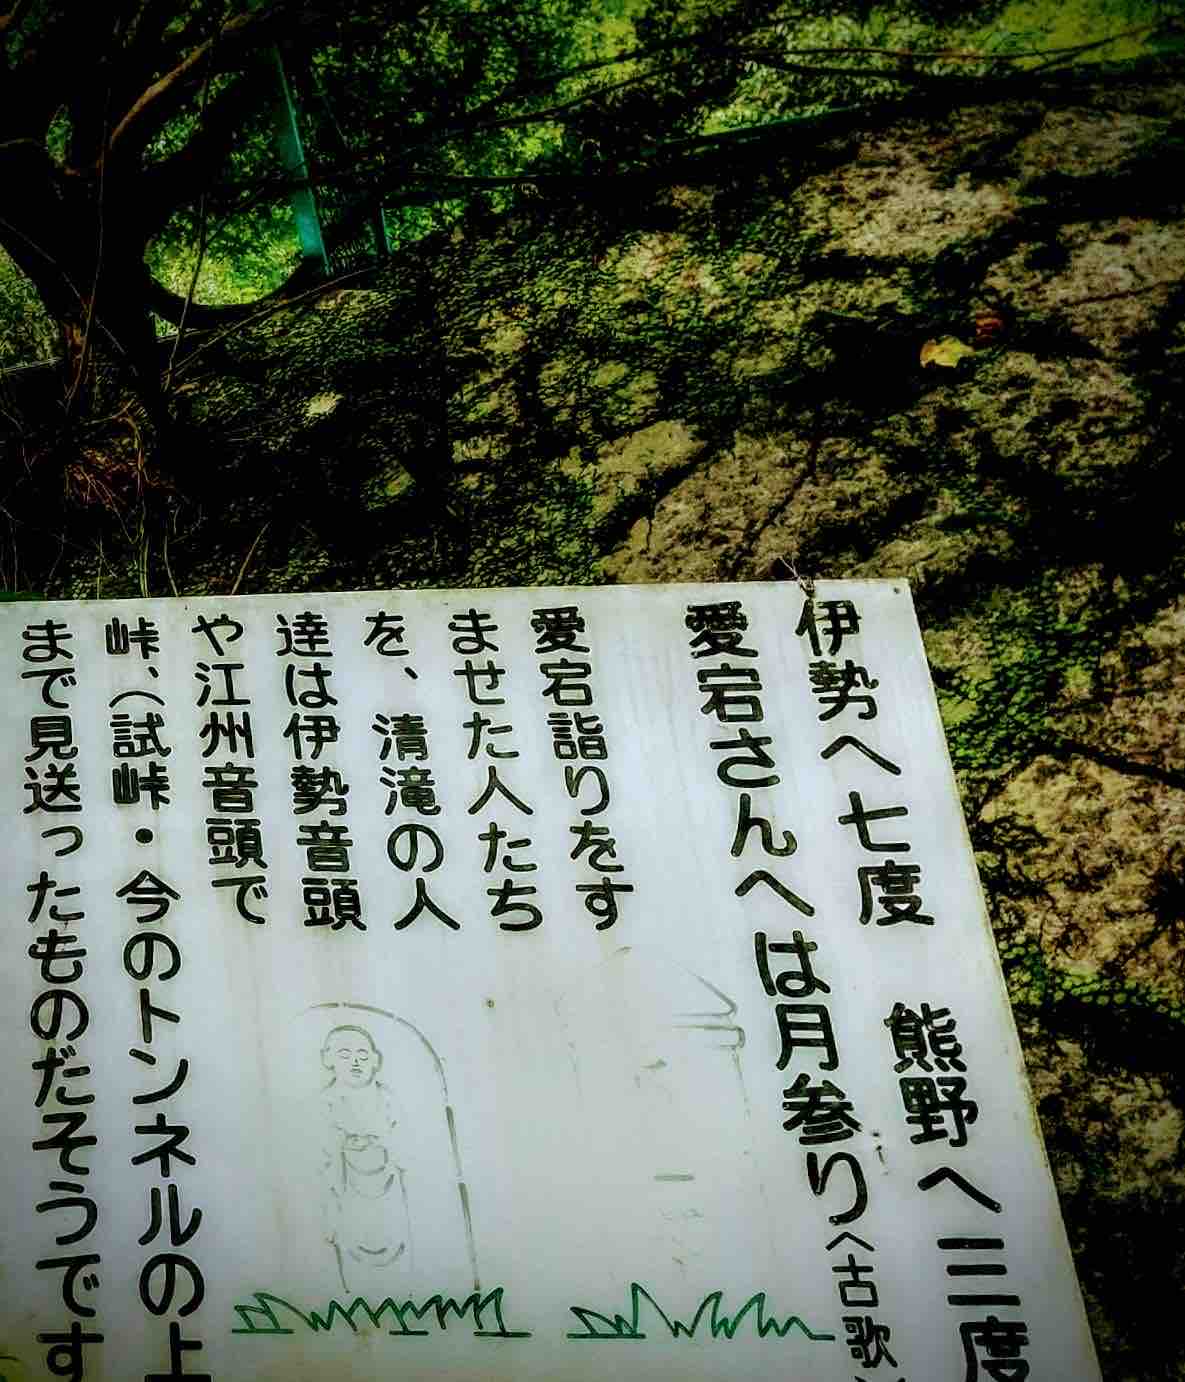 伊勢へ七度　熊野へ三度
愛宕さんへは月参り〈古歌
愛宕詣りをす
ませた人たち
を、清滝の人
達は伊勢音頭
や江州音頭で
峠、（試峠・今のトンネルの上
まで見送ったものだそうです